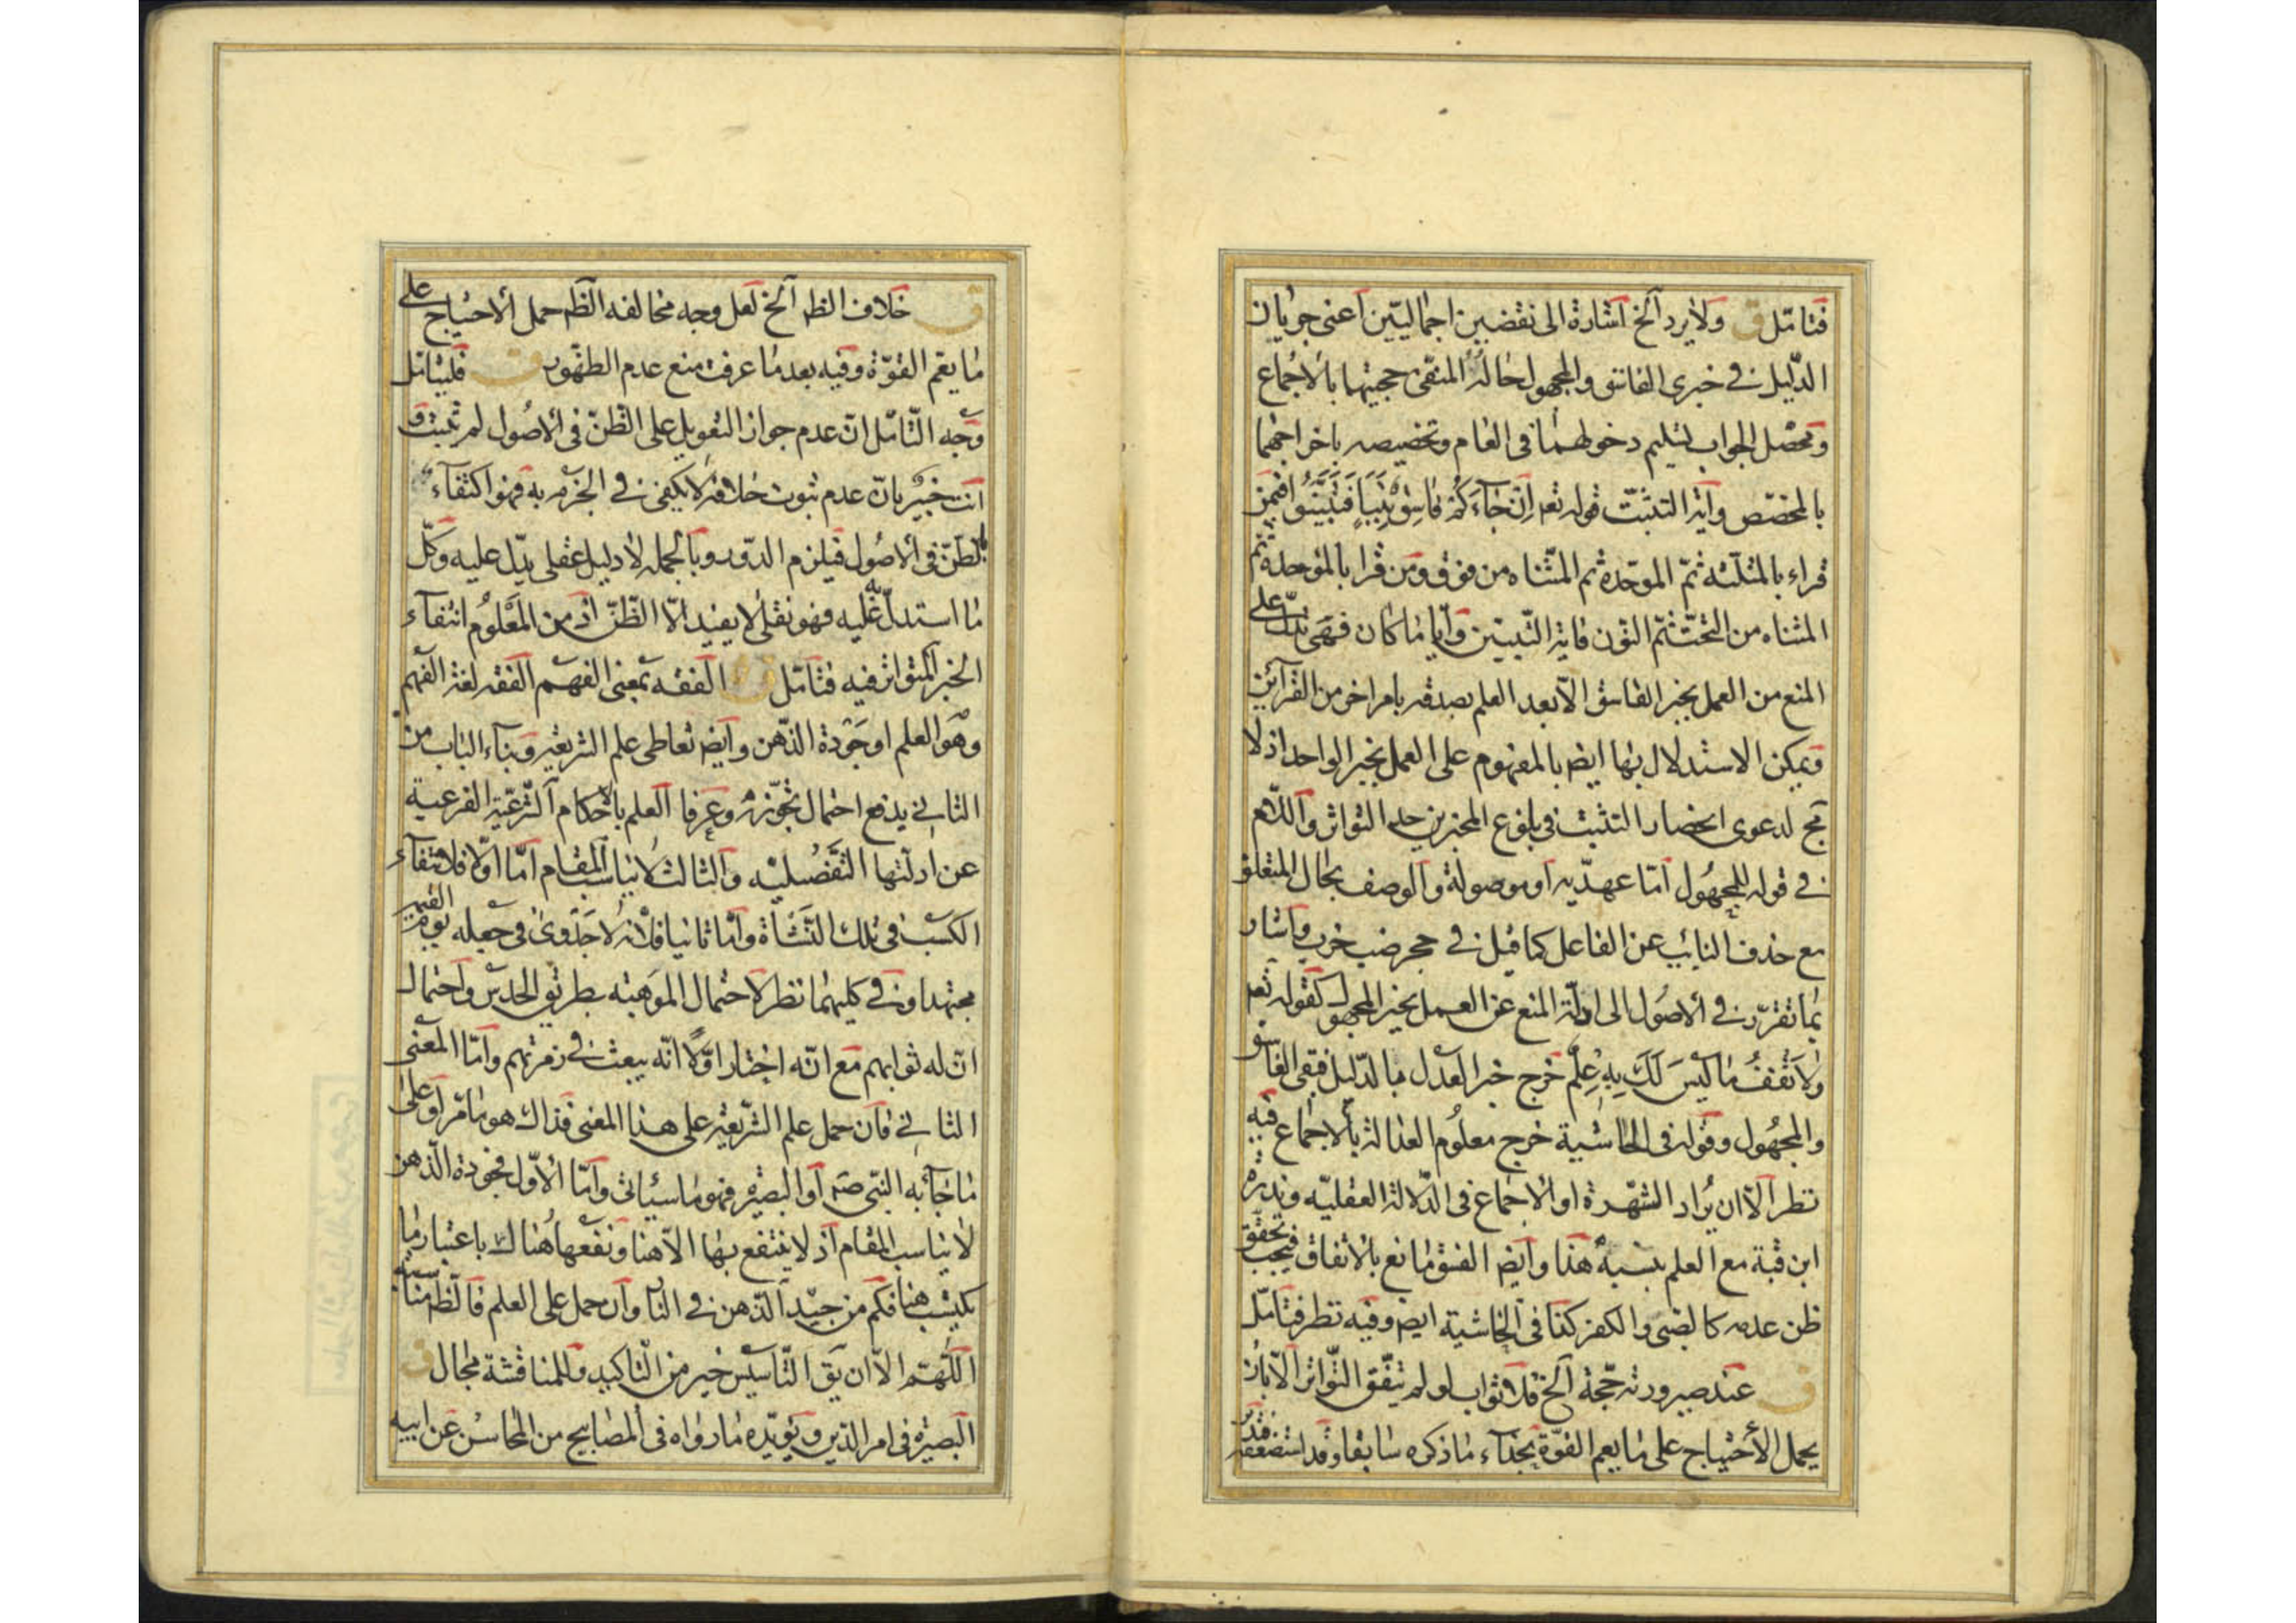 فتامّل ق ولا يرد آلخ اشارة الى نقضين اجماليّين اعنى جريان
الدّليل فى خبرى الفاسق والمجهول حاله المنفىّ حجيتهما بالاجماع
ومحصّل الجواب تسليم دخولهما فى العام وتخصيصه باخراجهما
بالمخصّص وآية التثبّت قوله تعه اِنْ جَآءَكُمْ فٰاسِقٌ بِنَبَأٍ فَتَبَيَّنُوا فمن
قراء بالمثلّثه ثمّ الموحّدة ثم المثنّاه من فوق ومن قرا بالموحدة ثم
المثناه من التحت ثمّ النون فاية التّبيين وايّا ما كان فهى تدلّ على
المنع من العمل بخبر الفاسق الّا بعد العلم بصدقه بامر اخر من القرآئن
ويمكن الاستدلال بها ايضا بالمفهوم على العمل بخبر الواحد اذ لا
مج لدعوى انحصار التثبت فى بلوغ المخبرين حد التواتر واللّام
فى قوله للمجهول امّا عهديّه او موصولة والوصف بحال المتعلق
مع حذف النايب عن الفاعل كما قيل فى حجر ضب خرب واشار
بما تقرّر فى الاصول الى ادلّة المنع عن العمل بخبر المجهول كقوله تعه
وَلاَ تَقْفُ مٰا لَيْسَ لَكَ بِهِ عِلْمٌ خرج خبر العدل بالدّليل فبقى الفاسق
والمجهول وقوله فى الحاشية خرج معلوم العدالة بالاجماع فيه
نظر الّا ان يُراد الشهرة او الاجماع فى الدّلالة العقليّه وندرة
ابن قبة مع العلم بنسبه هذا وايضا الفسق مانع بالاتفاق فيجب تحقق
ظن عدمه كالصّبى والكفر كذا فى الحاشية ايضا وفيه نظر فتامّل
ق عند صيرورته حجّة آلخ فلا ثواب لو لم يتّفق التّواتر الّا بان
يحمل الأحتياج على ما يعم القوّة بحذآء ما ذكره سابقا وقد استضعفه فتدبر
ق خلاف الظه آلخ لعل وجه مخالفه الظه حمل الاحتياج على
ما يعم القوّة وفيه بعد ما عرفت منع عدم الظهور ق فليتامّل
وجه التّامّل انّ عدم جواز التعويل على الظّنّ فى الاصُول لم يثبت و
انت خبيْر بانّ عدم ثبوت خلافه لا يكفى فى الجزم به فهو اكتفآء
بالظنّ فى الاصُول فيلزم الدّور وبالجمله لا دليل عقلى يدّل عليه وكلّ
ما استدلّ به عليه فهو نقلى لا يفيد الّا الظّنّ اذ من المَعْلُوم انتفآء
الخبر المتواتر فيه فتامّل ق الفقه بمعنى الفهم الفقه لغة الفهم
وهو العلم او جَوْدة الذّهن وايضا تعاطى علم الشريعة وبناء الباب من
الثانى يدفع احتمال تجوّزه وعرفا العلم بالاحكام الشّرعيّة الفرعية
عن ادلّتها التّفصُيليّه والثالث لا يناسب المقام امّا اوّلا فلانتفآء
الكسب فى تلك النّشأة وامّا ثانيا فلأنه لا جَدْوىٰ فى جعله يوم القيمة
مجتهدا وفى كليهما نظر لاحتمال الموهبته بطريق الحديث واحتمال
ان له ثوابهم مع انّه اختار اوّلًا انّه يبعث فى زمرتهم وامّا المعنى
الثانى فان حمل علم الشّريعة على هذا المعنى فذاك هو ما مّر او على
ما جآء به النّبى صه او البصيرة فهو ما سيأتى وامّا الاوّل فجودة الذّهن
لا يناسب المقام اذ لا ينتفع بها الّا هنا ونفعها هُناك باعتبار ما
يكتسب هنا فكم من جيّد الذّهن فى النار وان حمل على العلم فالظه مناسبته
اللّهُمّ الّا ان يق التّاسيس خير من التّاكيد وللمناقشة مجال ق
البصيرة فى امر الدّين ويؤيّده ما رواه فى المصابيح من المحاسن عن ابيه